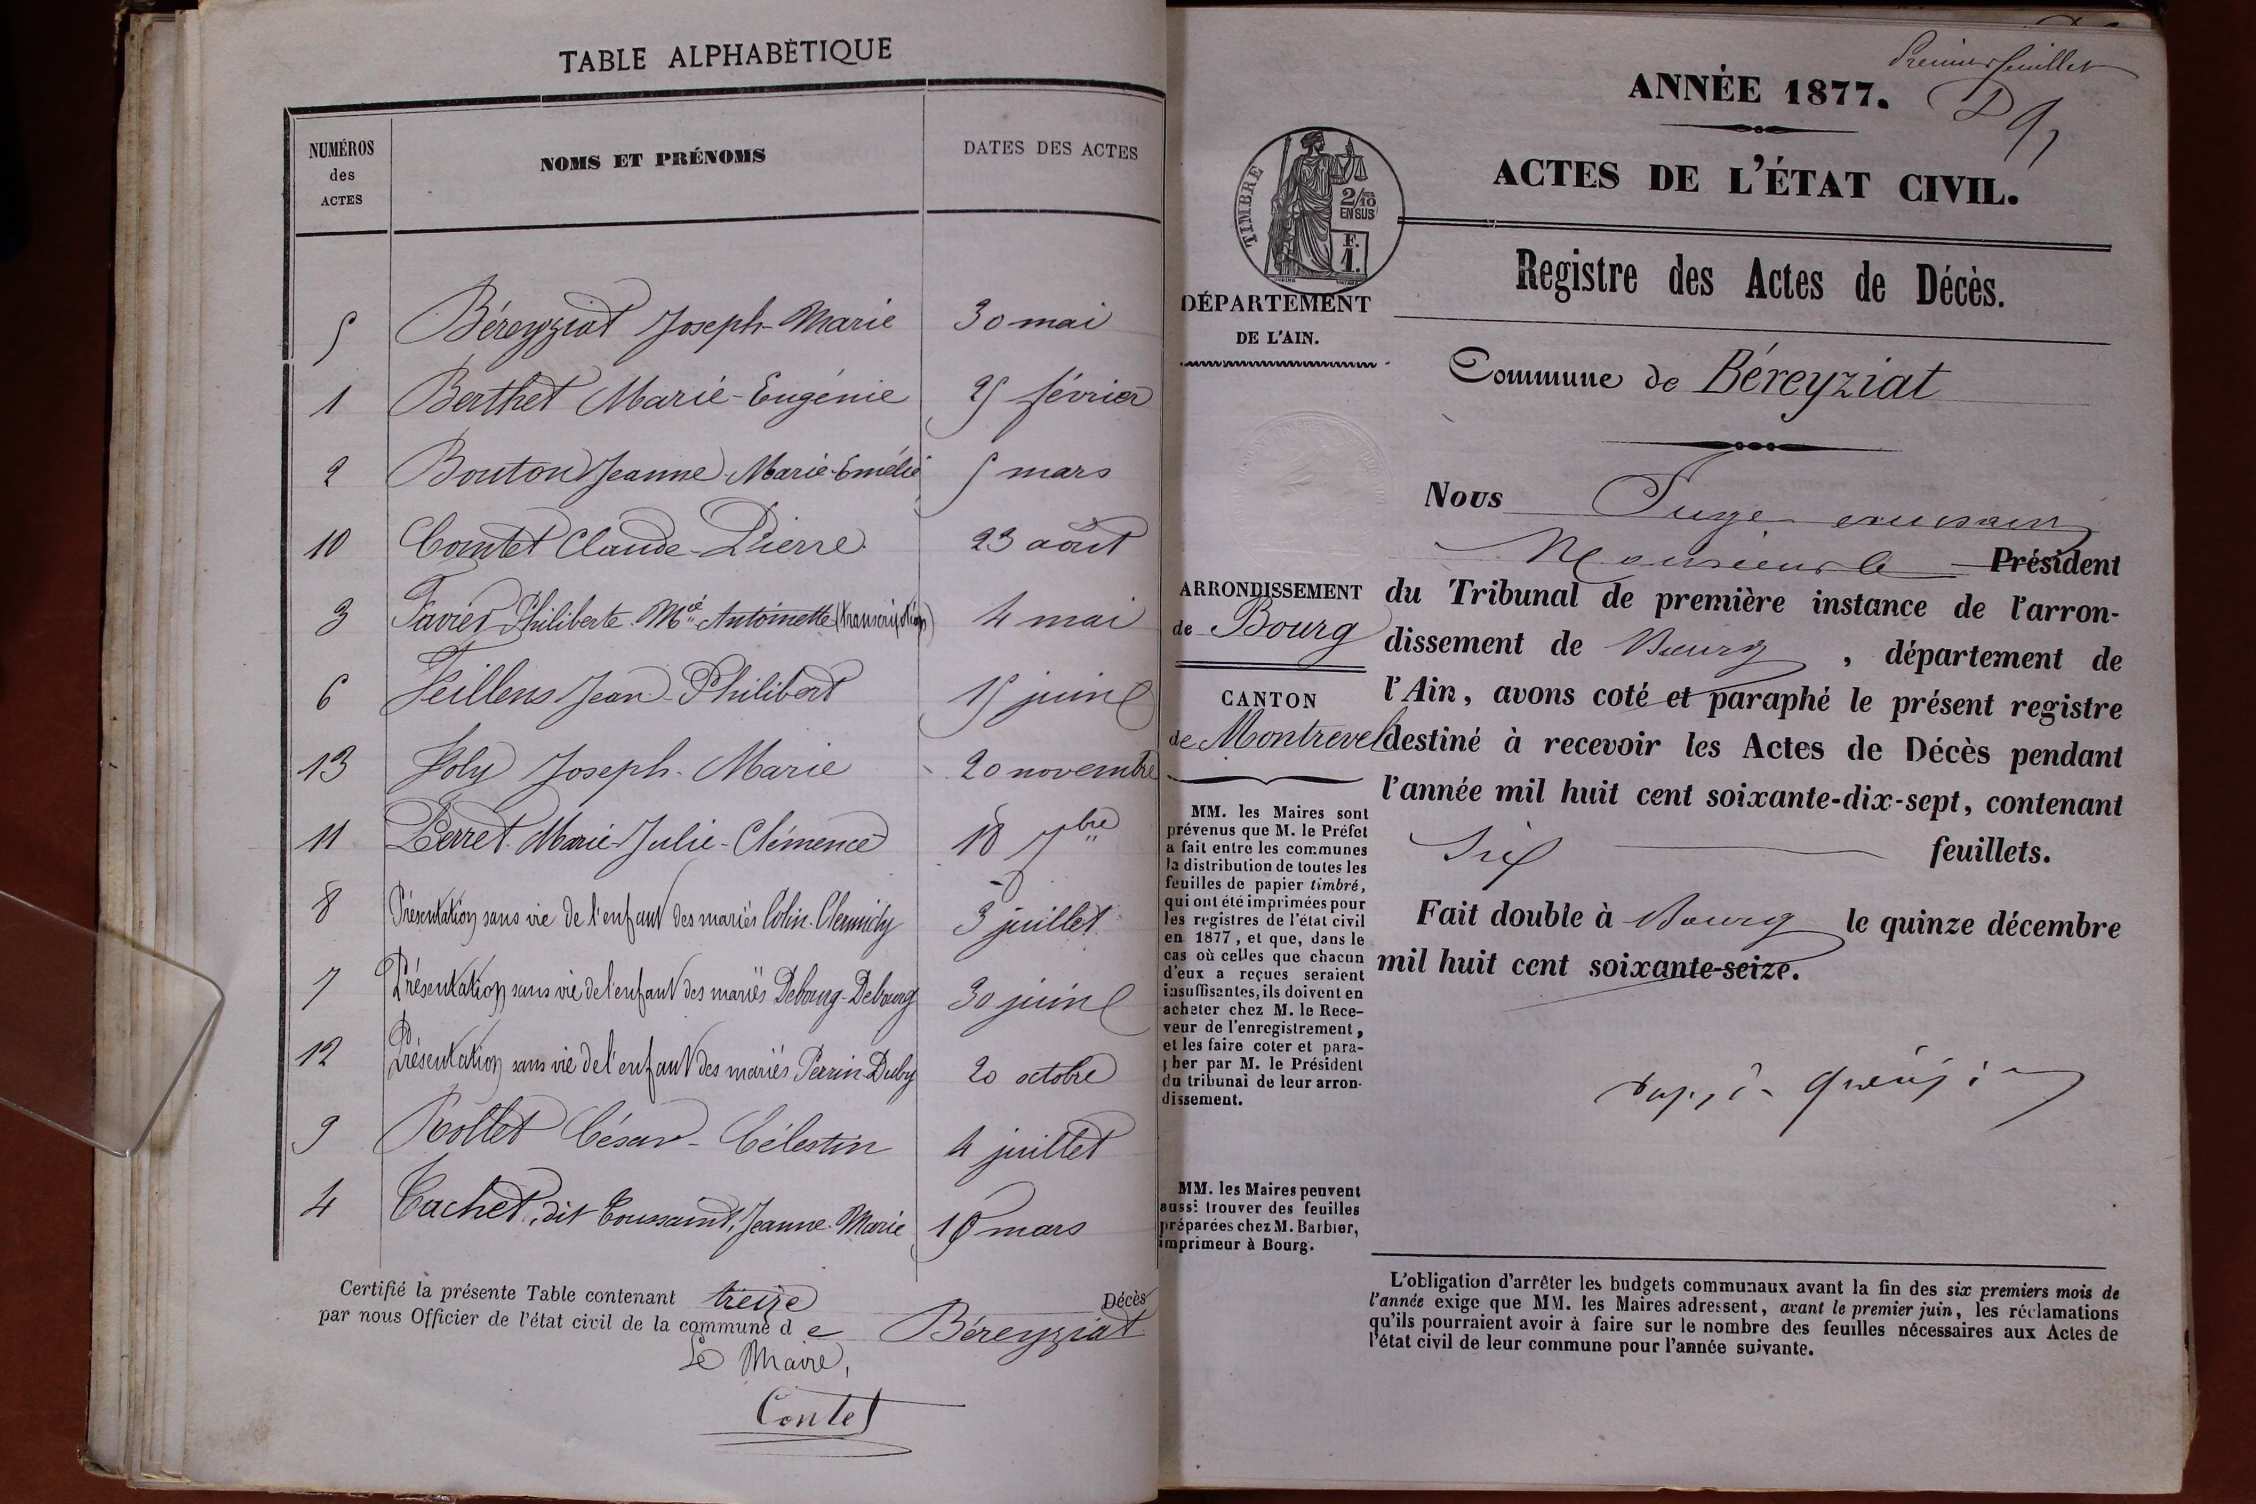 TABLE ALPHABÈTIQUE
NUMÉROS
des
ACTES
NOMS ET PRÉNOMS
DATES DES ACTES
5 Béreyziat Joseph-Marie 30 mai
1 Berthet Marie-Eugénie 25 février
2 Bouton Jeanne-Marie-Emélie 5 mars
10 Comtet Claude-Pierre 23 août
3 Favier Philiberte Mie Antoinette (transcription) 4 mai
6 Feillens Jean-Philibert 15 juin
13 Joly Joseph-Marie 20 novembre
11 Perret Marie-Julie-Clémence 18 7bre
8 Présentation sans vie de l'enfant des mariés Colin- 3 juillet
7 Présentation sans vie de l'enfant des mariés Debourg-Debourg 30 juin
12 Présentation sans vie de l'enfant des mariés Perrin-Duby 20 octobre
9 Rollet César-Célestin 4 juillet
4 Cachet, dit Toussaint, Jeanne-Marie mars
Certifié la présente Table contenant treize Décès
par nous Officier de l'état civil de la commune de Béreyziat
Le Maire,
Contet
Premier feuillet
ANNÉE 1877.
ACTES DE L'ÉTAT CIVIL.
TIMBRE
2/10
EN SUS
F.
1.
Registre des Actes de Décès.
DÉPARTEMENT
DE L'AIN.
Commune de Béreyziat
ARRONDISSEMENT
de Bourg
CANTON
de Montrevel
MM. les Maires sont
prévenus que M. le Préfet
a fait entre les communes
la distribution de toutes les
feuilles de papier timbré,
qui ont été imprimées pour
les registres de l'état civil
en 1877, et que, dans le
cas où celles que chacun
d'eux a reçues seraient
insuffisantes, ils doivent en
acheter chez M. le Rece-
veur de l'enregistrement,
et les faire coter et para-
pher par M. le Président
du tribunal de leur arron-
dissement.
MM. les Maires peuvent
aussi trouver des feuilles
préparées chez M. Barbier,
imprimeur à Bourg.
Nous Juge
Monsieur le Président
du Tribunal de première instance de l'arron-
dissement de Bourg, département de
l'Ain, avons coté et paraphé le présent registre
destiné à recevoir les Actes de Décès pendant
l'année mil huit cent soixante-dix-sept, contenant
Six feuillets.
Fait double à Bourg le quinze décembre
mil huit cent soixante-seize.
L'obligation d'arrêter les budgets communaux avant la fin des six premiers mois de
l'année exige que MM. les Maires adressent, avant le premier juin, les réclamations
qu'ils pourraient avoir à faire sur le nombre des feuilles nécessaires aux Actes de
l'état civil de leur commune pour l'année suivante.